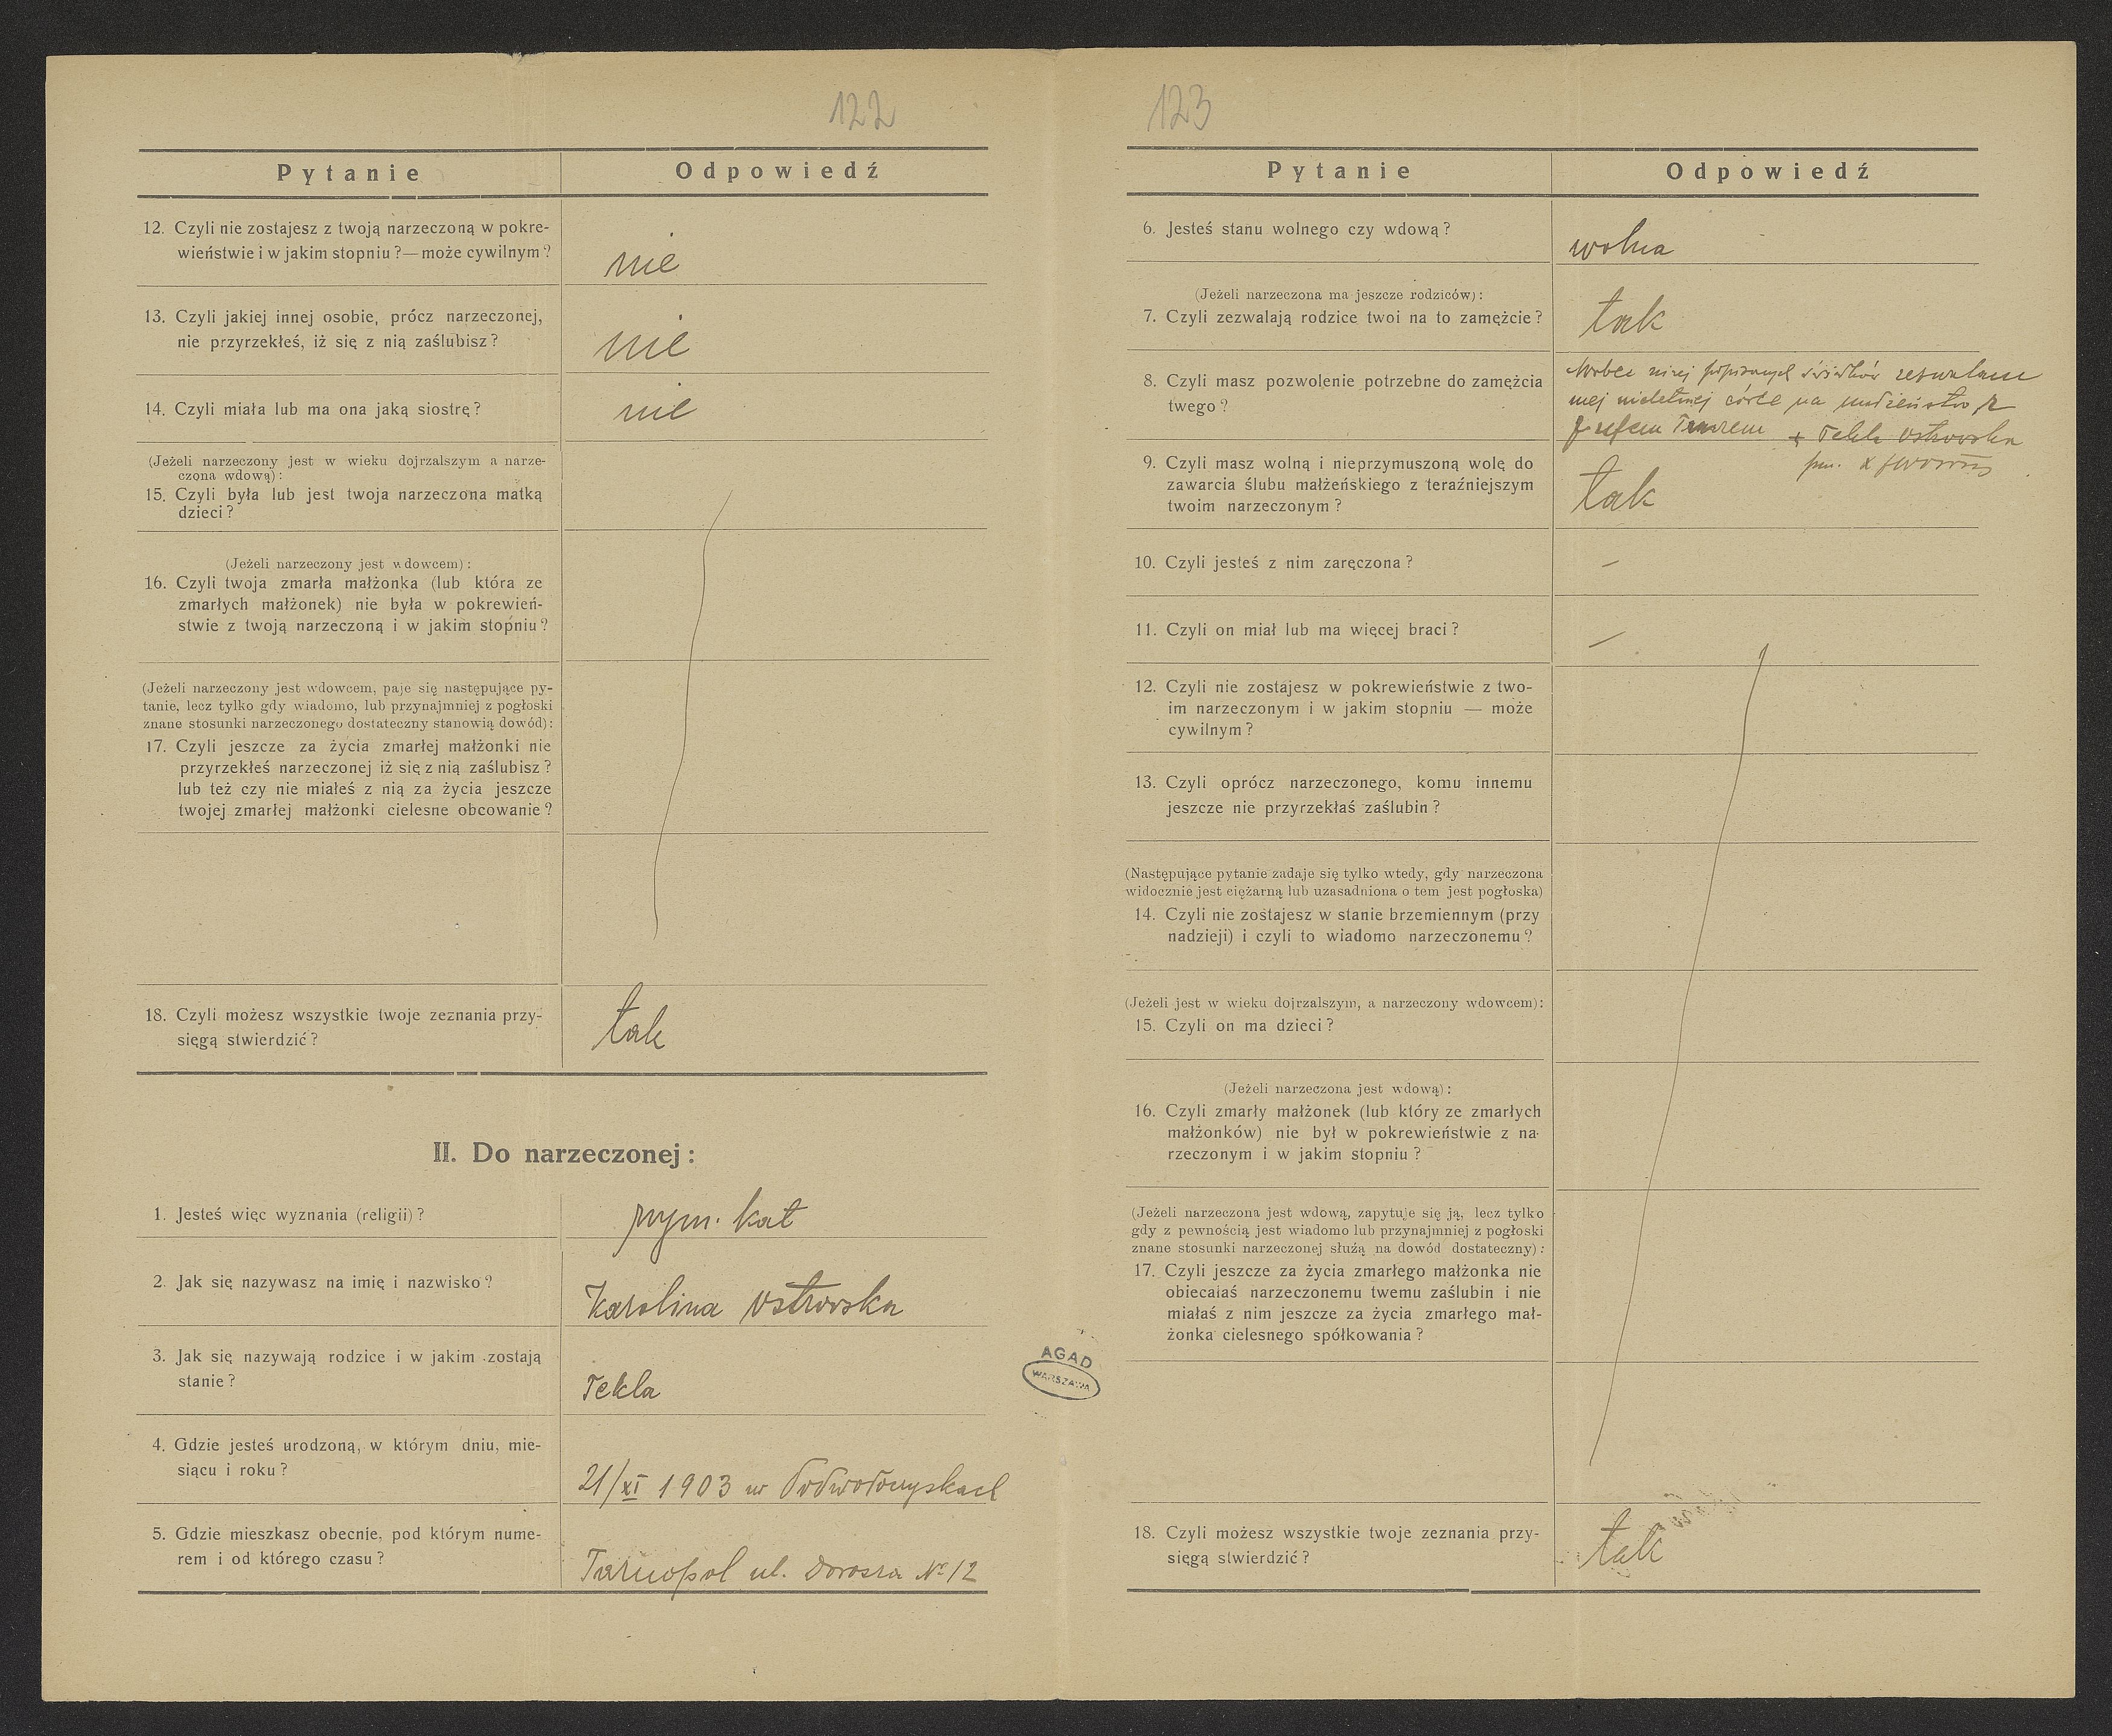 122
Pytanie
Odpowiedź
12. Czyli nie zostajesz z twoją narzeczoną w pokre-
wieństwie i w jakim stopniu ? — może cywilnym ?
nie
13. Czyli jakiej innej osobie, prócz narzeczonej,
nie przyrzekłeś, iż się z nią zaślubisz ?
nie
14. Czyli miała lub ma ona jaką siostrę ?
nie
(Jeżeli narzeczony jest w wieku dojrzalszym a narze-
czona wdową) :
15. Czyli była lub jest twoja narzeczona matką
dzieci ?
(Jeżeli narzeczony jest wdowcem) :
16. Czyli twoja zmarła małżonka (lub która ze
zmarłych małżonek) nie była w pokrewień-
stwie z twoją narzeczoną i w jakim stopniu ?
(Jeżeli narzeczony jest wdowcem, paje się następujące py-
tanie, lecz tylko gdy wiadomo, lub przynajmniej z pogłoski
znane stosunki narzeczonego dostateczny stanowią dowód) :
17. Czyli jeszcze za życia zmarłej małżonki nie
przyrzekłeś narzeczonej iż się z nią zaślubisz ?
lub też czy nie miałeś z nią za życia jeszcze
twojej zmarłej małżonki cielesne obcowanie ?
18. Czyli możesz wszystkie twoje zeznania przy-
sięgą stwierdzić ?
tak
II. Do narzeczonej :
1. Jesteś więc wyznania (religii) ?
rzym. kat
2. Jak się nazywasz na imię i nazwisko ?
Karolina Ostrowska
3. Jak się nazywają rodzice i w jakim zostają
stanie ?
Tekla
4. Gdzie jesteś urodzoną, w którym dniu, mie-
siącu i roku ?
21/XI 1903 w Podwołoczyskach
5. Gdzie mieszkasz obecnie, pod którym nume-
rem i od którego czasu ?
Tarnopol ul. Dorosza № 12
AGAD
WARSZAWA
123
Pytanie
Odpowiedź
6. Jesteś stanu wolnego czy wdową ?
wolna
(Jeżeli narzeczona ma jeszcze rodziców) :
7. Czyli zezwalają rodzice twoi na to zamęźcie ?
tak
8. Czyli masz pozwolenie potrzebne do zamęźcia
twego ?
Wobec niżej podpisanych świadków zezwalam
mej nieletniej córce na małżeństwo z
Józefem + Tekla Ostrowska
9. Czyli masz wolną i nieprzymuszoną wolę do
zawarcia ślubu małżeńskiego z teraźniejszym
twoim narzeczonym ?
tak
10. Czyli jesteś z nim zaręczona ?
–
11. Czyli on miał lub ma więcej braci ?
–
12. Czyli nie zostajesz w pokrewieństwie z two-
im narzeczonym i w jakim stopniu — może
cywilnym ?
13. Czyli oprócz narzeczonego, komu innemu
jeszcze nie przyrzekłaś zaślubin ?
(Następujące pytanie zadaje się tylko wtedy, gdy narzeczona
widocznie jest ciężarną lub uzasadniona o tem jest pogłoska)
14. Czyli nie zostajesz w stanie brzemiennym (przy
nadzieji) i czyli to wiadomo narzeczonemu ?
(Jeżeli jest w wieku dojrzalszym, a narzeczony wdowcem) :
15. Czyli on ma dzieci ?
(Jeżeli narzeczona jest wdową) :
16. Czyli zmarły małżonek (lub który ze zmarłych
małżonków) nie był w pokrewieństwie z na-
rzeczonym i w jakim stopniu ?
(Jeżeli narzeczona jest wdową, zapytuje się ją, lecz tylko
gdy z pewnością jest wiadomo lub przynajmniej z pogłoski
znane stosunki narzeczonej służą na dowód dostateczny) :
17. Czyli jeszcze za życia zmarłego małżonka nie
obiecałaś narzeczonemu twemu zaślubin i nie
miałaś z nim jeszcze za życia zmarłego mał-
żonka cielesnego spółkowania ?
18. Czyli możesz wszystkie twoje zeznania przy-
sięgą stwierdzić ?
tak